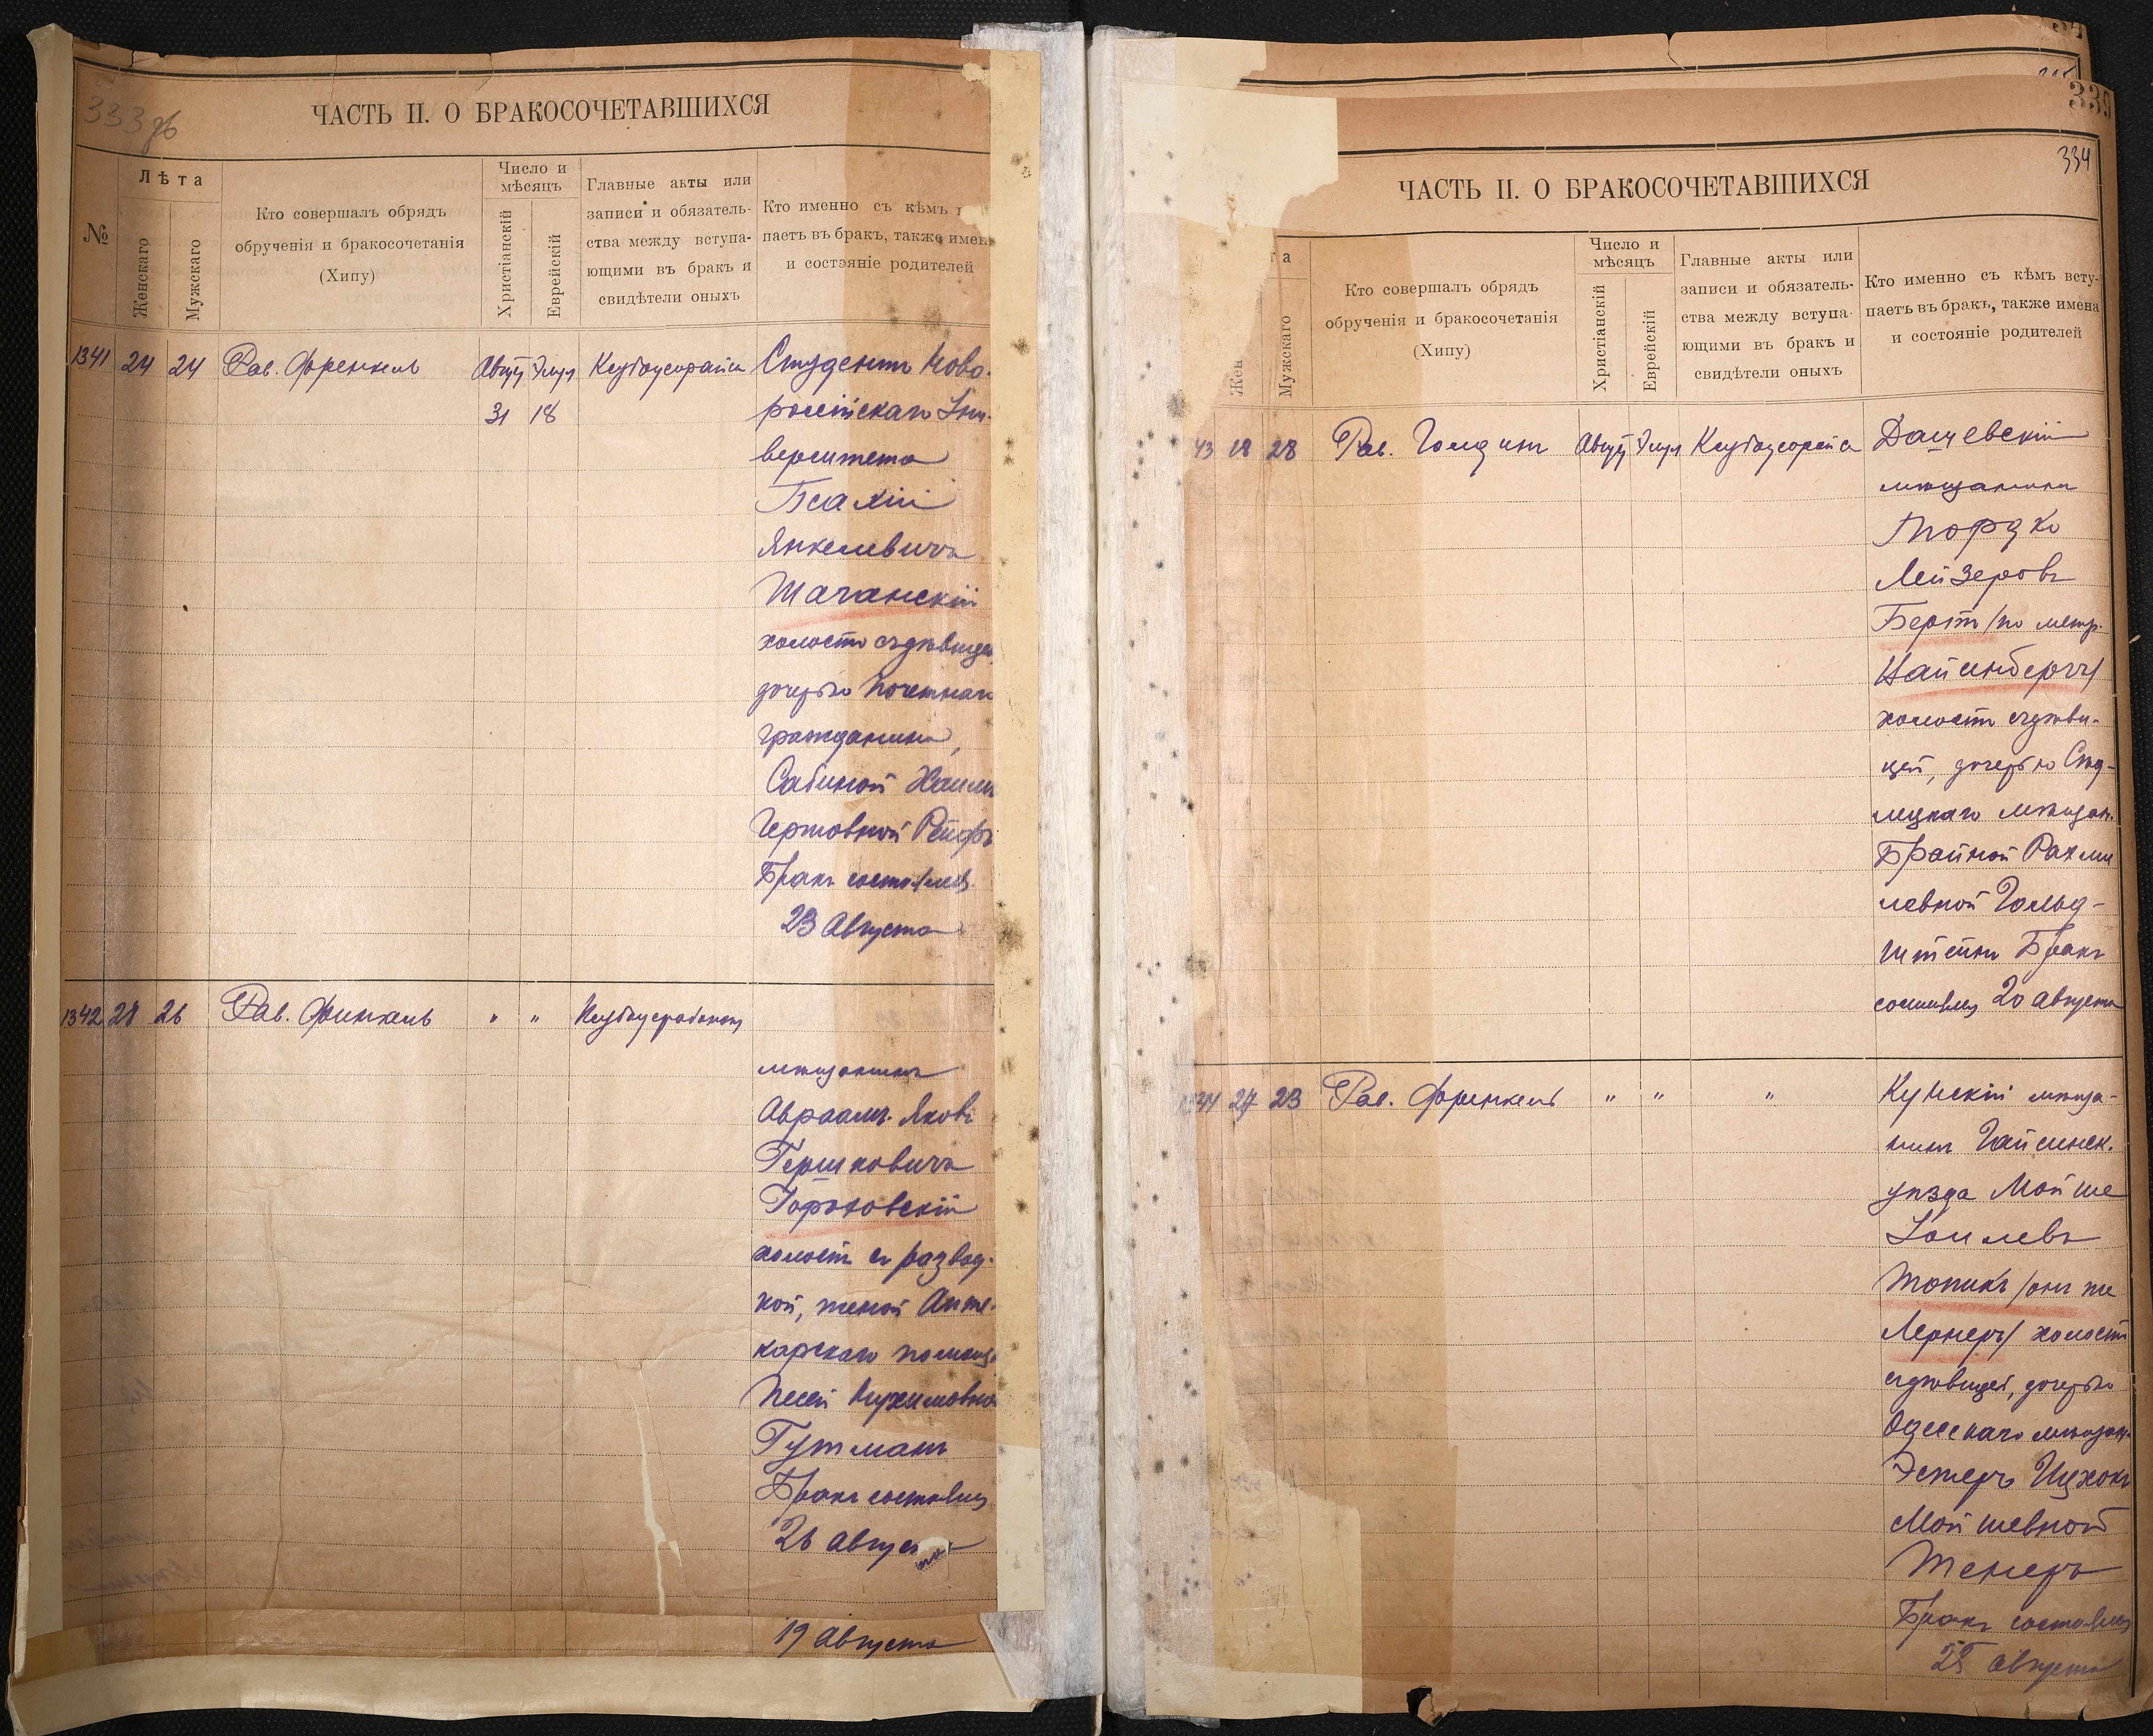 333 об
ЧАСТЬ II. О БРАКОСОЧЕТАВШИХСЯ
№
Лѣта
Женскаго
Мужскаго
Кто совершалъ обрядъ
обрученія и бракосочетанія
(Хипу)
Число и
мѣсяцъ
Христіанскій
Еврейскій
Главные акты или
записи и обязатель-
ства между вступа-
ющими въ бракъ и
свидѣтели оныхъ
Кто именно съ кѣмъ
паетъ въ бракъ, также имен
и состояніе родителей
1341 24 24 Рав. Френкель Август Элул
31 18
Студентъ Ново-
россійскаго Уни-
верситета
Псахій
Янкелевичъ
Шаганскій
холостъ съ дѣвицей,
дочерью почетнаго
гражданина,
Сабиной Хаим
Герцовной Рейфъ
Бракъ состоялся
23 Августа
1342 28 26 Рав. Финкель " "
мѣщанинъ
Авраамъ-Яковъ
Гершковичъ
Гороховскій
холостъ съ развод-
кой, женой Апте-
карскаго помощ.
Песей Нухимовной
Гутманъ
Бракъ состоялся
26 Августа
19 Августа
339
334
ЧАСТЬ II. О БРАКОСОЧЕТАВШИХСЯ
та
Жен
Мужскаго
Кто совершалъ обрядъ
обрученія и бракосочетанія
(Хипу)
Число и
мѣсяцъ
Христіанскій
Еврейскій
Главные акты или
записи и обязатель-
ства между вступа-
ющими въ бракъ и
свидѣтели оныхъ
Кто именно съ кѣмъ всту-
паетъ въ бракъ, также имена
и состояніе родителей
43 18 28 Рав. Голдинъ Август Элул
Дашевскій
мѣщанинъ
Мордко
Лейзеровъ
/по метр.
Вайинбергъ/
холостъ съ дѣви-
цей, дочерью Сѣд-
лецкаго мѣщан.
Брайной Рахми
левной Гольд-
штейнъ Бракъ
состоялся 20 августа
1344 24 23 Рав. Френкель " " "
Кунскій мѣща-
нинъ Гайсинск.
уѣзда Мойше
Іоилевъ
Топикъ /онъ же
Лернеръ/ холостъ
съ дѣвицей, дочерью
Одесскаго мѣщан.
Эстеръ Ицхокъ
Мойшевной
Тенеръ
Бракъ состоялся
25 августа